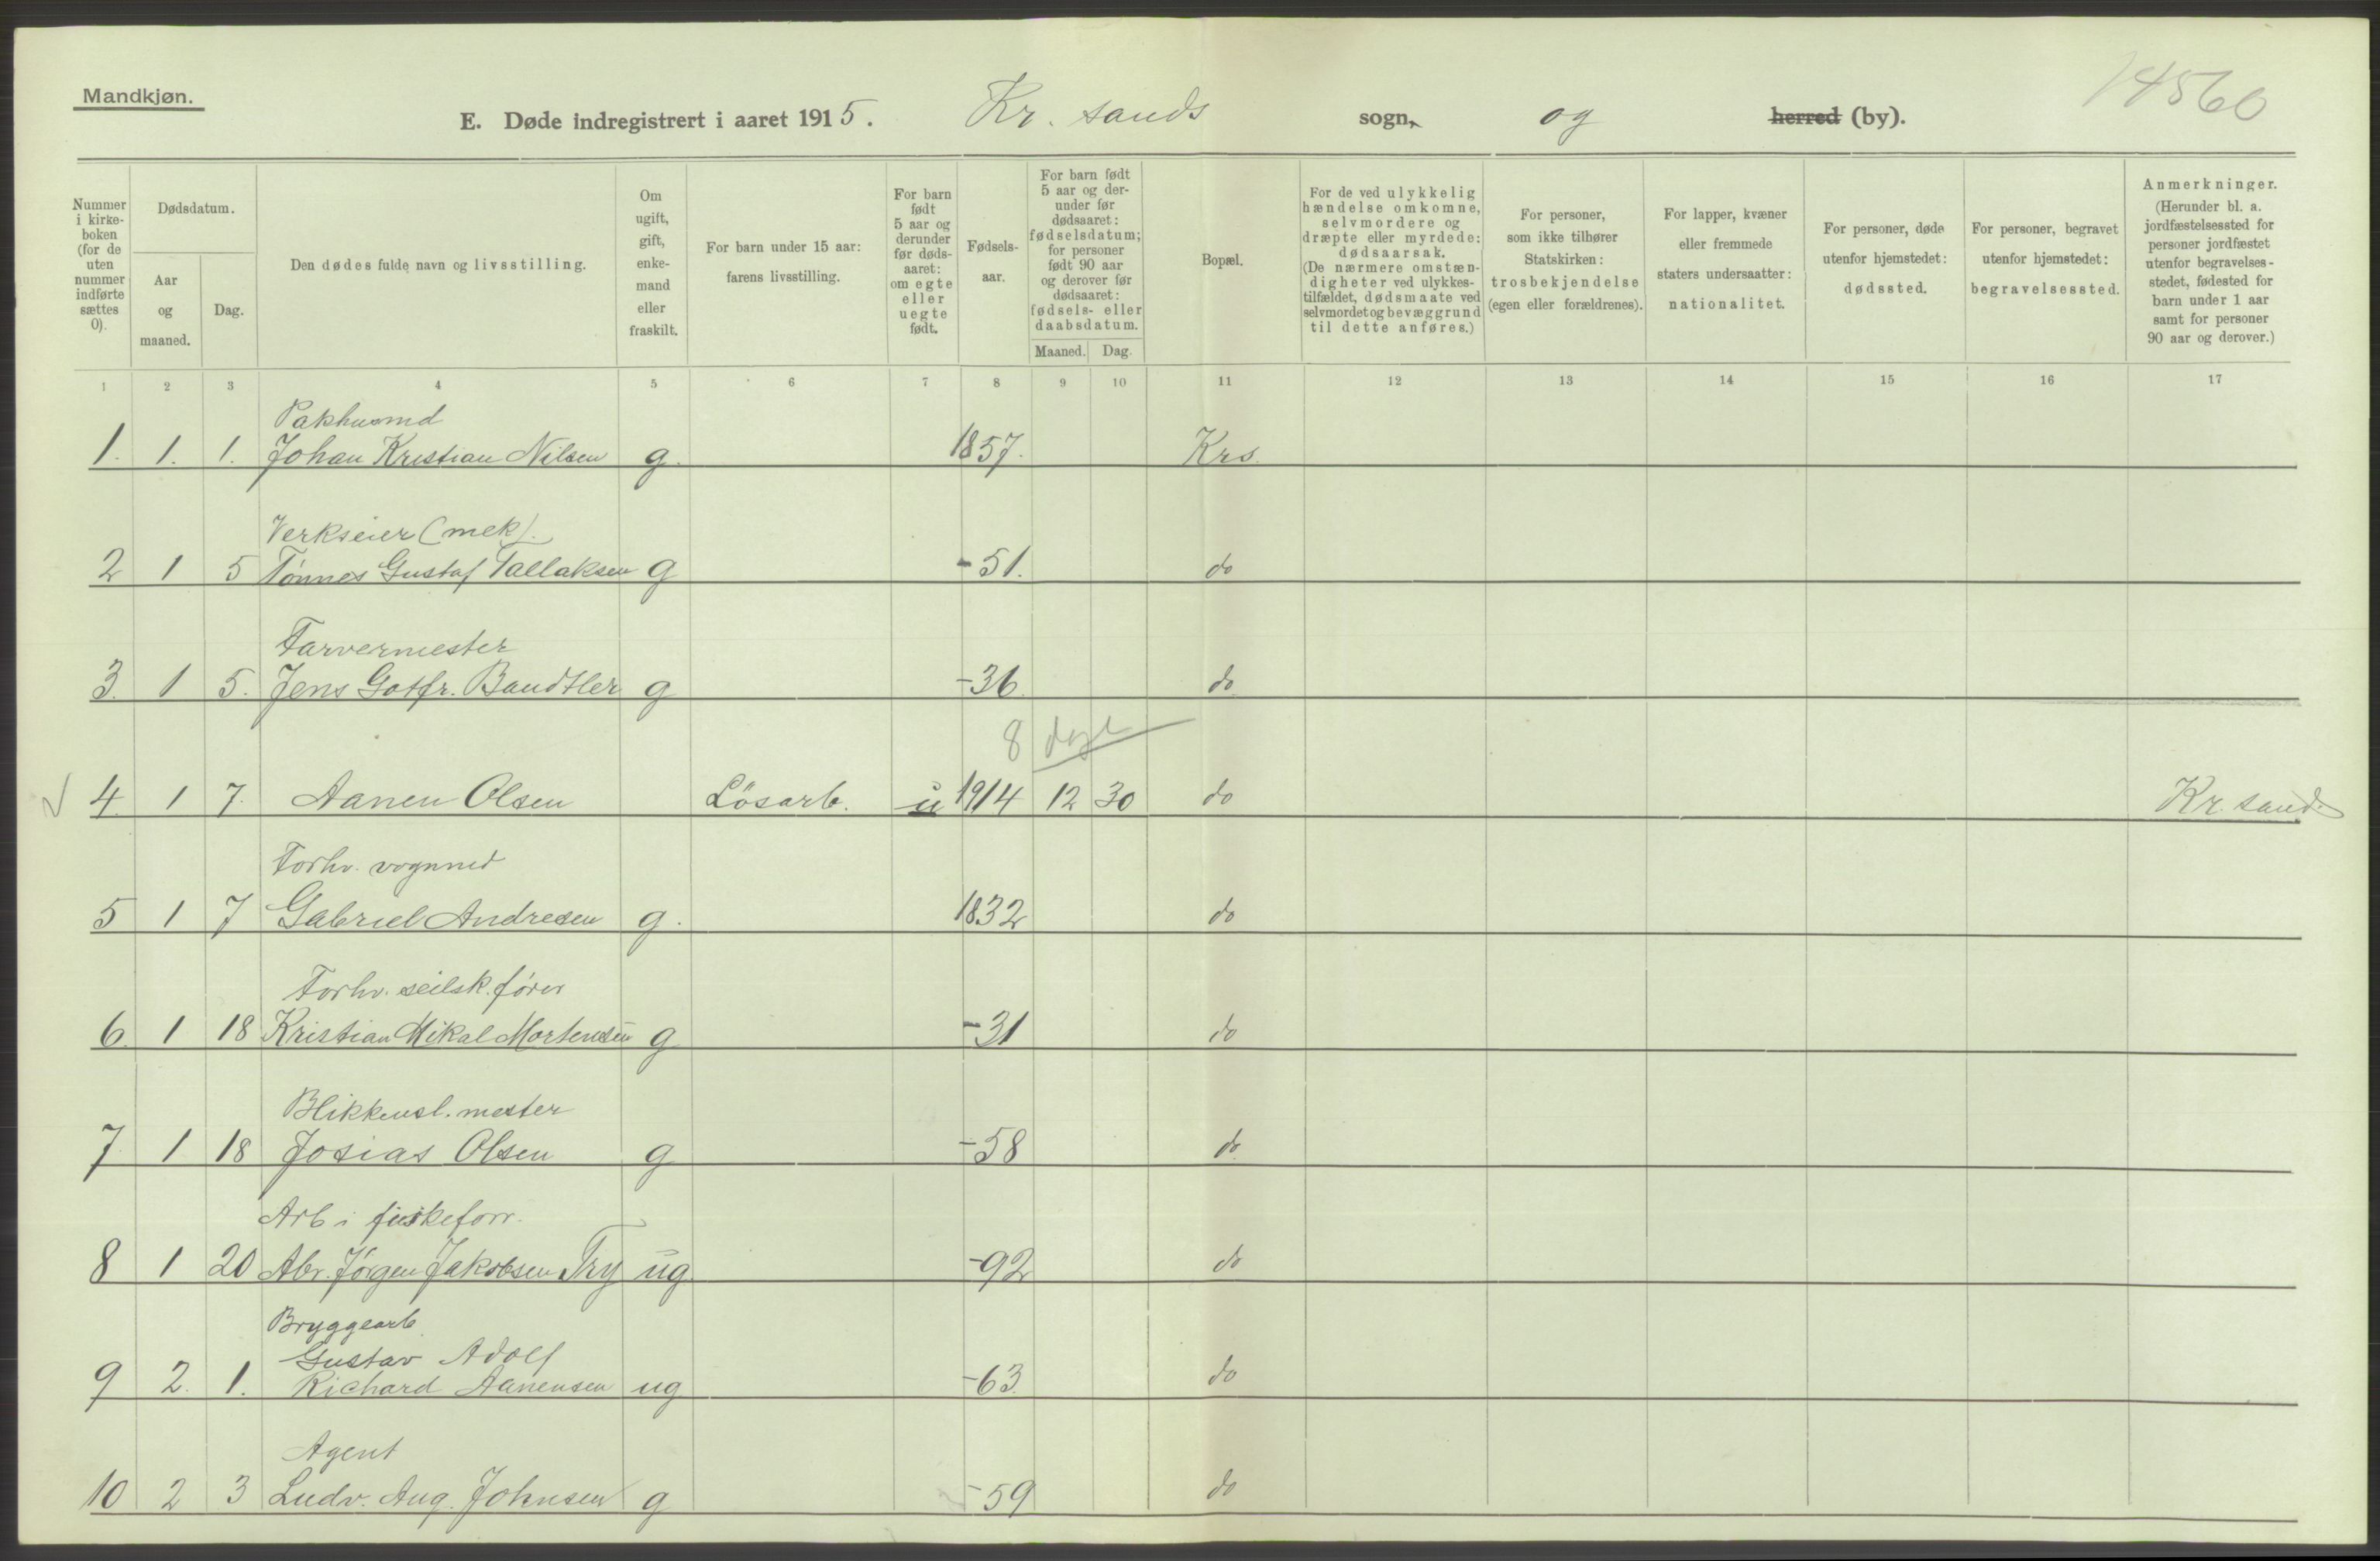 Mandkjøn.
14560
E. Døde indregistrert i aaret 1915. Kr. sands sogn, og herred (by).
Nummer i kirkeboken (for de uten nummer indførte sættes 0).
Dødsdatum.
Aar og maaned.
Dag.
Den dødes fulde navn og livsstilling.
Om ugift, gift, enkemand eller fraskilt.
For barn under 15 aar: farens livsstilling.
For barn født 5 aar og derunder før dødsaaret: om egte eller uegte født.
Fødselsaar.
For barn født 5 aar og derunder før dødsaaret: fødselsdatum; for personer født 90 aar og derover før dødsaaret: fødsels- eller daabsdatum.
Maaned. Dag.
Bopæl.
For de ved ulykkelig hændelse omkomne, selvmordere og dræpte eller myrdede: dødsaarsak. (De nærmere omstændigheter ved ulykkestilfældet, dødsmaate ved selvmordet og bevæggrund til dette anføres.)
For personer, som ikke tilhører Statskirken: trosbekjendelse (egen eller forældrenes).
For lapper, kvæner eller fremmede staters undersaatter: nationalitet.
For personer, døde utenfor hjemstedet: dødssted.
For personer, begravet utenfor hjemstedet: begravelsessted.
Anmerkninger. (Herunder bl. a. jordfæstelsessted for personer jordfæstet utenfor begravelsesstedet, fødested for barn under 1 aar samt for personer 90 aar og derover.)
1 2 3 4 5 6 7 8 9 10 11 12 13 14 15 16 17
Pakhusmd
1. 1. 1. Johan Kristian Nilsen g. 1857. Krs.
Verkseier (mek).
2 1 5 Tönnes Gustaf Tallaksen g -51. do
Farvermester
3. 1 5. Jens Gotfr. Bandtler g -36. do
8 dage
4. 1 7. Aanen Olsen Lösarb. u 1914 12 30 do Kr. sand.
Forhv. vognmd
5 1 7 Gabriel Andresen g. 1832 do
Forhv. seilsk. förer
6. 1 18 Kristian Mikal Mortensen g -31 do
Blikkensl. mester
7 1 18 Josias Olsen g -58 do
Arb i fiskeforr.
8 1 20 Abr. Jörgen Jakobsen Try ug -92 do
Bryggearb
Gustav Adolf
9 2. 1. Richard Aanensen ug -63. do
Agent
10 2 3 Ludv. Aug. Johnsen g -59 do